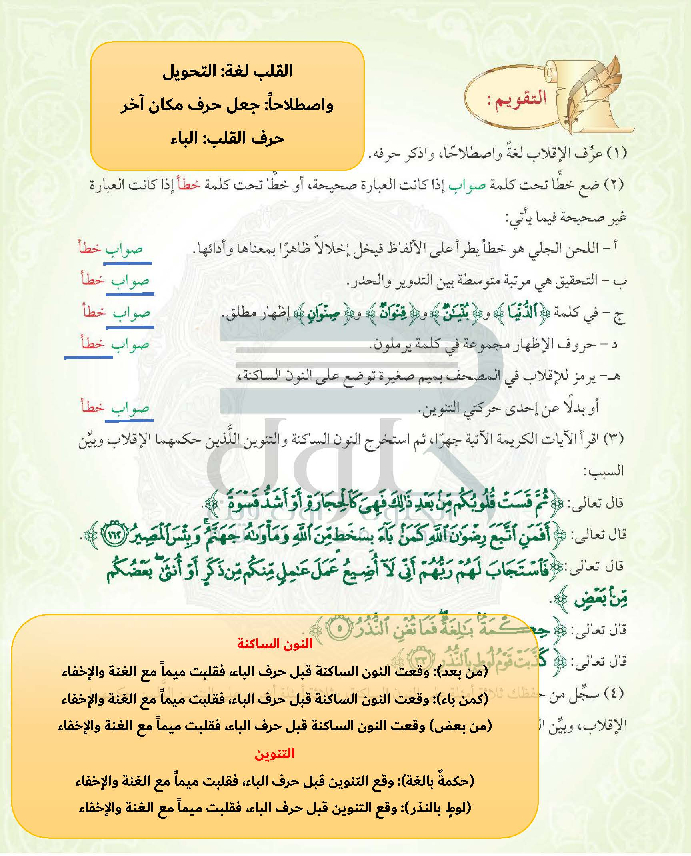 القلب لغة: التحويل
واصطلاحاً: جعل حرف مكان آخر
حرف القلب: الباء
التقويم:
(١) عرِّف الإقلاب لغةً واصطلاحًا، واذكر حرفه.
(٢) ضع خطًّا تحت كلمة صواب إذا كانت العبارة صحيحة، أو خطًّا تحت كلمة خطأ إذا كانت العبارة
غير صحيحة فيما يأتي:
أ - اللحن الجلي هو خطأ يطرأ على الألفاظ فيخل إخلالاً ظاهرًا بمعناها وأدائها. صواب خطأ
ب - التحقيق هي مرتبة متوسطة بين التدوير والحدر. صواب خطأ
ج - في كلمة ﴿ٱلدُّنْيَا﴾ و﴿بُنْيَٰنٌ﴾ و﴿قِنْوَانٌ﴾ و﴿صِنْوَانٍ﴾ إظهار مطلق. صواب خطأ
د - حروف الإظهار مجموعة في كلمة يرملون. صواب خطأ
هـ - يرمز للإقلاب في المصحف بميم صغيرة توضع على النون الساكنة،
أو بدلًا عن إحدى حركتي التنوين. صواب خطأ
(٣) اقرأ الآيات الكريمة الآتية جهرًا، ثم استخرج النون الساكنة والتنوين اللَّذين حكمهما الإقلاب وبيِّن
السبب:
قال تعالى: ﴿ثُمَّ قَسَتْ قُلُوبُكُم مِّنۢ بَعْدِ ذَٰلِكَ فَهِىَ كَٱلْحِجَارَةِ أَوْ أَشَدُّ قَسْوَةً﴾.
قال تعالى: ﴿أَفَمَنِ ٱتَّبَعَ رِضْوَٰنَ ٱللَّهِ كَمَنۢ بَآءَ بِسَخَطٍ مِّنَ ٱللَّهِ وَمَأْوَىٰهُ جَهَنَّمُ ۚ وَبِئْسَ ٱلْمَصِيرُ ١٦٢﴾.
قال تعالى: ﴿فَٱسْتَجَابَ لَهُمْ رَبُّهُمْ أَنِّى لَآ أُضِيعُ عَمَلَ عَٰمِلٍ مِّنكُم مِّن ذَكَرٍ أَوْ أُنثَىٰ ۖ بَعْضُكُم
مِّنۢ بَعْضٍ﴾.
قال تعالى: ﴿حِكْمَةٌۢ بَٰلِغَةٌ ۖ فَمَا تُغْنِ ٱلنُّذُرُ ٥﴾.
قال تعالى: ﴿كَذَّبَتْ قَوْمُ لُوطٍۭ بِٱلنُّذُرِ ٣٣﴾
(٤) سجِّل من حفظك
الإقلاب، وبيِّن
النون الساكنة
(من بعد): وقعت النون الساكنة قبل حرف الباء، فقلبت ميماً مع الغنة والإخفاء
(كمن باء): وقعت النون الساكنة قبل حرف الباء، فقلبت ميماً مع الغنة والإخفاء
(من بعض) وقعت النون الساكنة قبل حرف الباء، فقلبت ميماً مع الغنة والإخفاء
التنوين
(حكمةٌ بالغة): وقع التنوين قبل حرف الباء، فقلبت ميماً مع الغنة والإخفاء
(لوطٍ بالنذر): وقع التنوين قبل حرف الباء، فقلبت ميماً مع الغنة والإخفاء